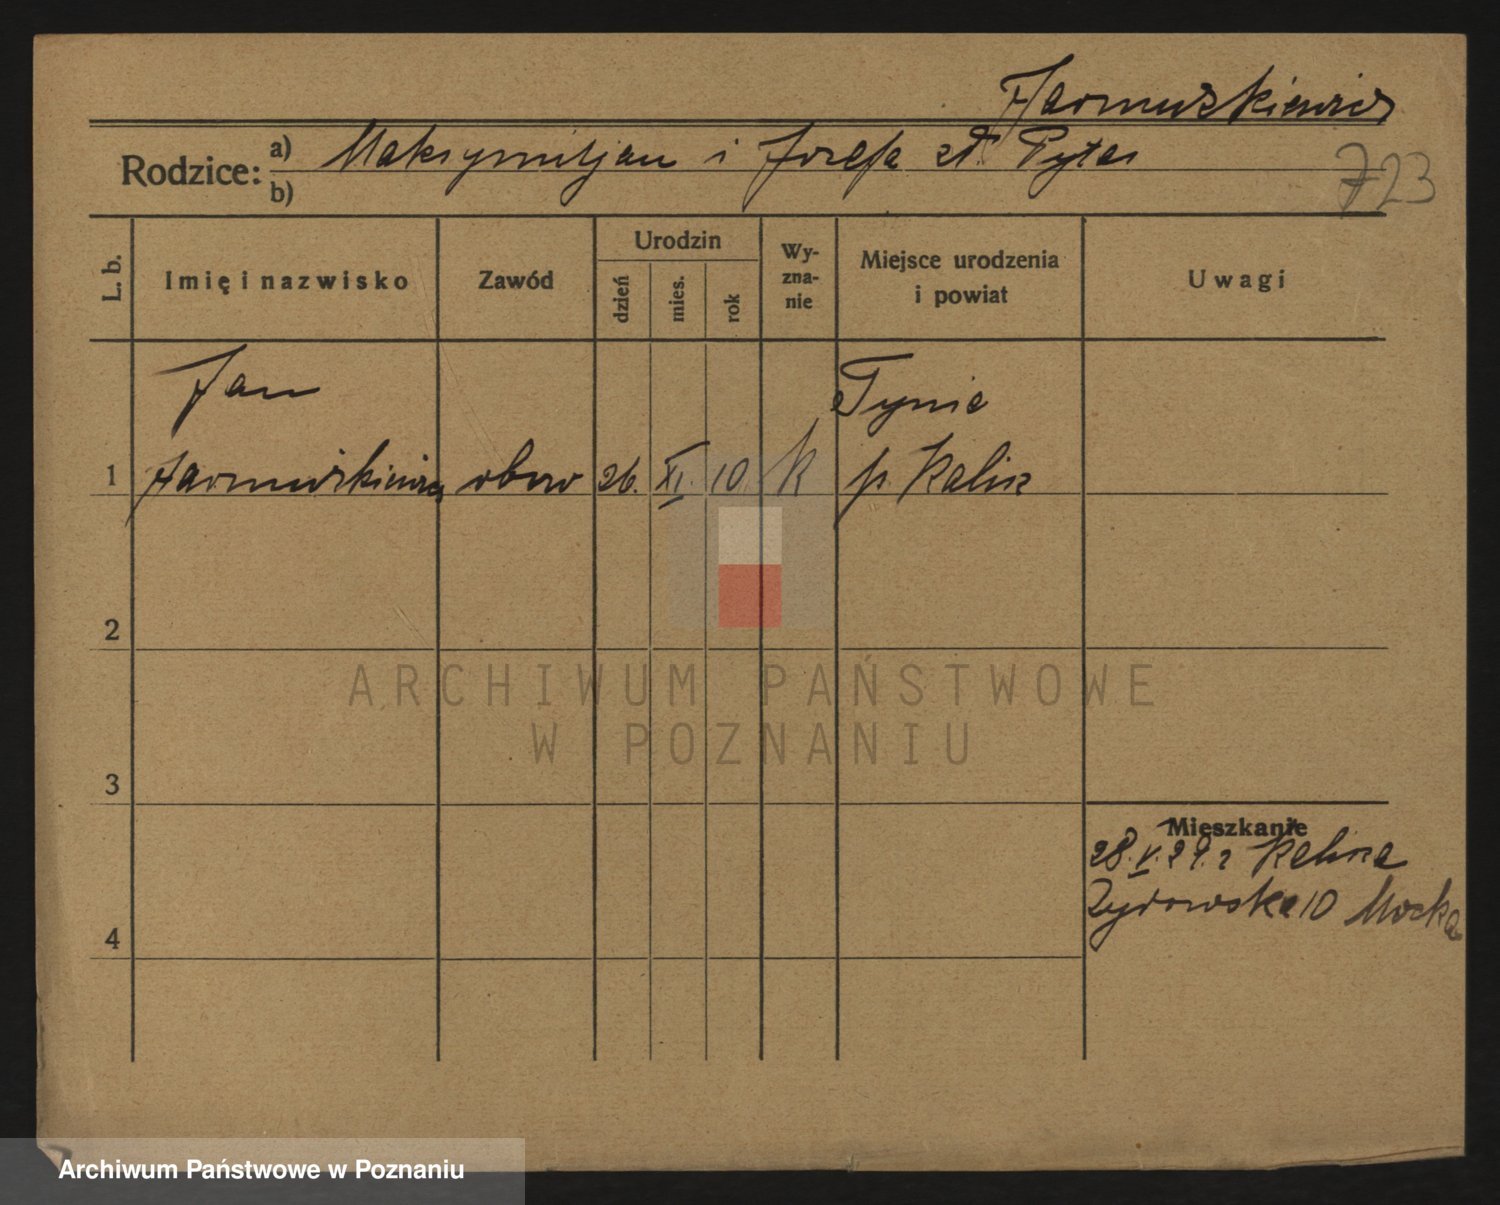 Jarmuszkiewicz
Rodzice: a) Maksymiljan i Józefa zd. Pytas
b)
723
L. b.
Imię i nazwisko
Zawód
Urodzin
dzień
mies.
rok
Wy-
zna-
nie
Miejsce urodzenia
i powiat
Uwagi
Jan Tynic
1 Jarmuszkiewicz 26. XI. 10. k p. Kalisz
2
3
4
Mieszkanie
28.V.29. z Kalisza
Żydowska 10 Mocka
ARCHIWUM PAŃSTWOWE
W POZNANIU
Archiwum Państwowe w Poznaniu